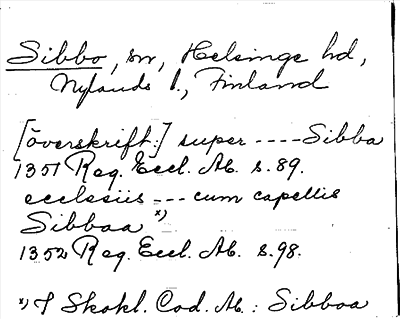 Sibbo, sn, Helsinge hd,
Nylands l., Finland
[överskrift:] super ---- Sibba
1351 Reg. Eccl. Ab. s. 89.
ecclesiis --- cum capellis
Sibbaa x)
1352 Reg. Eccl. Ab. s. 98.
x) I Skokl. Cod. Ab.: Sibboa